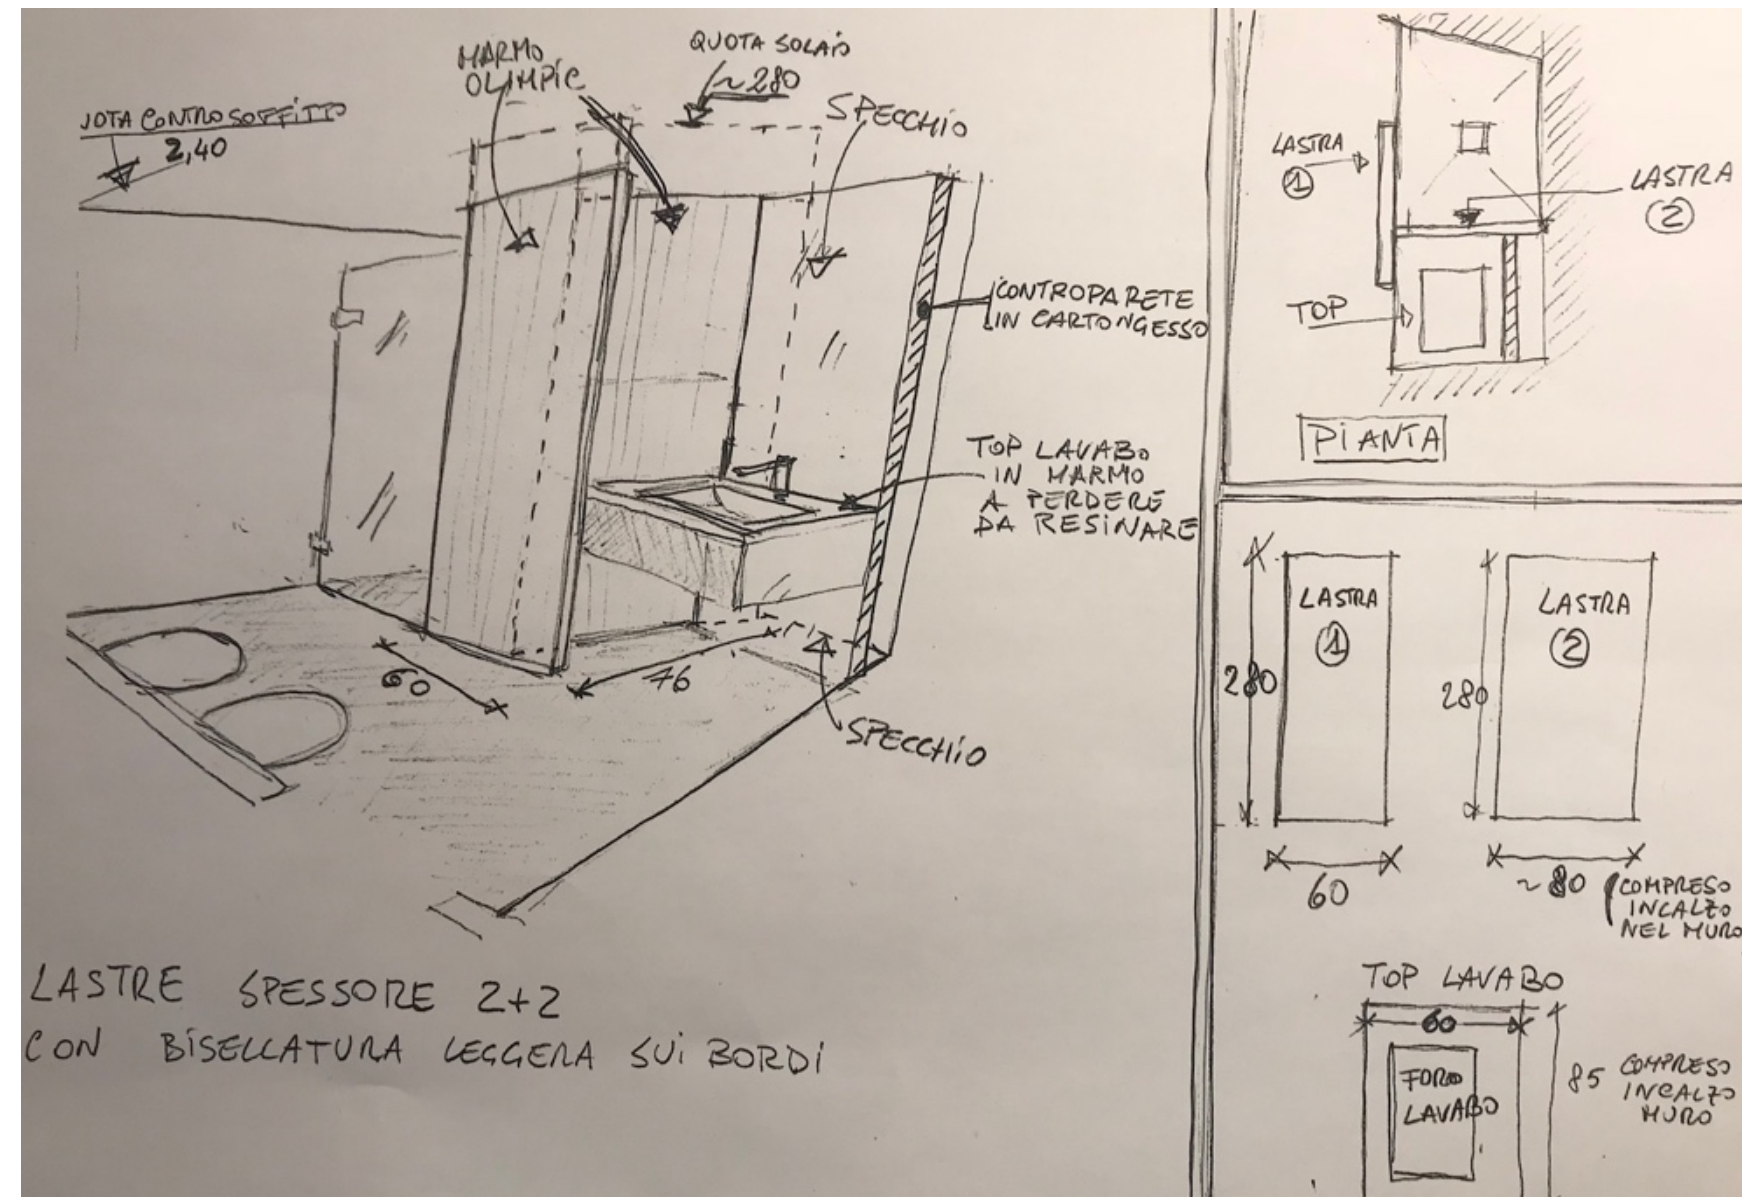 MARMO
OLIMPIC
QUOTA SOLAIO
~280
SPECCHIO
JOTA CONTROSOFFITTO
2,40
CONTROPARETE
IN CARTONGESSO
TOP LAVABO
IN MARMO
A PERDERE
DA RESINARE
60
76
SPECCHIO
LASTRE SPESSORE 2+2
CON BISELLATURA LEGGERA SUI BORDI
LASTRA
1
LASTRA
2
TOP
PIANTA
LASTRA
1
280
60
LASTRA
2
280
~80
(COMPRESO
INCALZO
NEL MURO
TOP LAVABO
60
FORO
LAVABO
85 COMPRESO
INCALZO
MURO